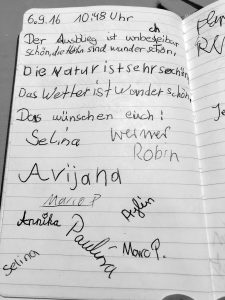 6.9.16 10:48 Uhr
ch
Der Ausblieg ist unbe
schön, die Kühe sind wunder schön,
Die Natur ist sehr schön
Das Wetter ist wunder schön,
Das wünschen euch!
Selina Werner
Robin
Avijana
Marco P.
Annika Aylin
Paulina Marc P.
Selina
ch
R